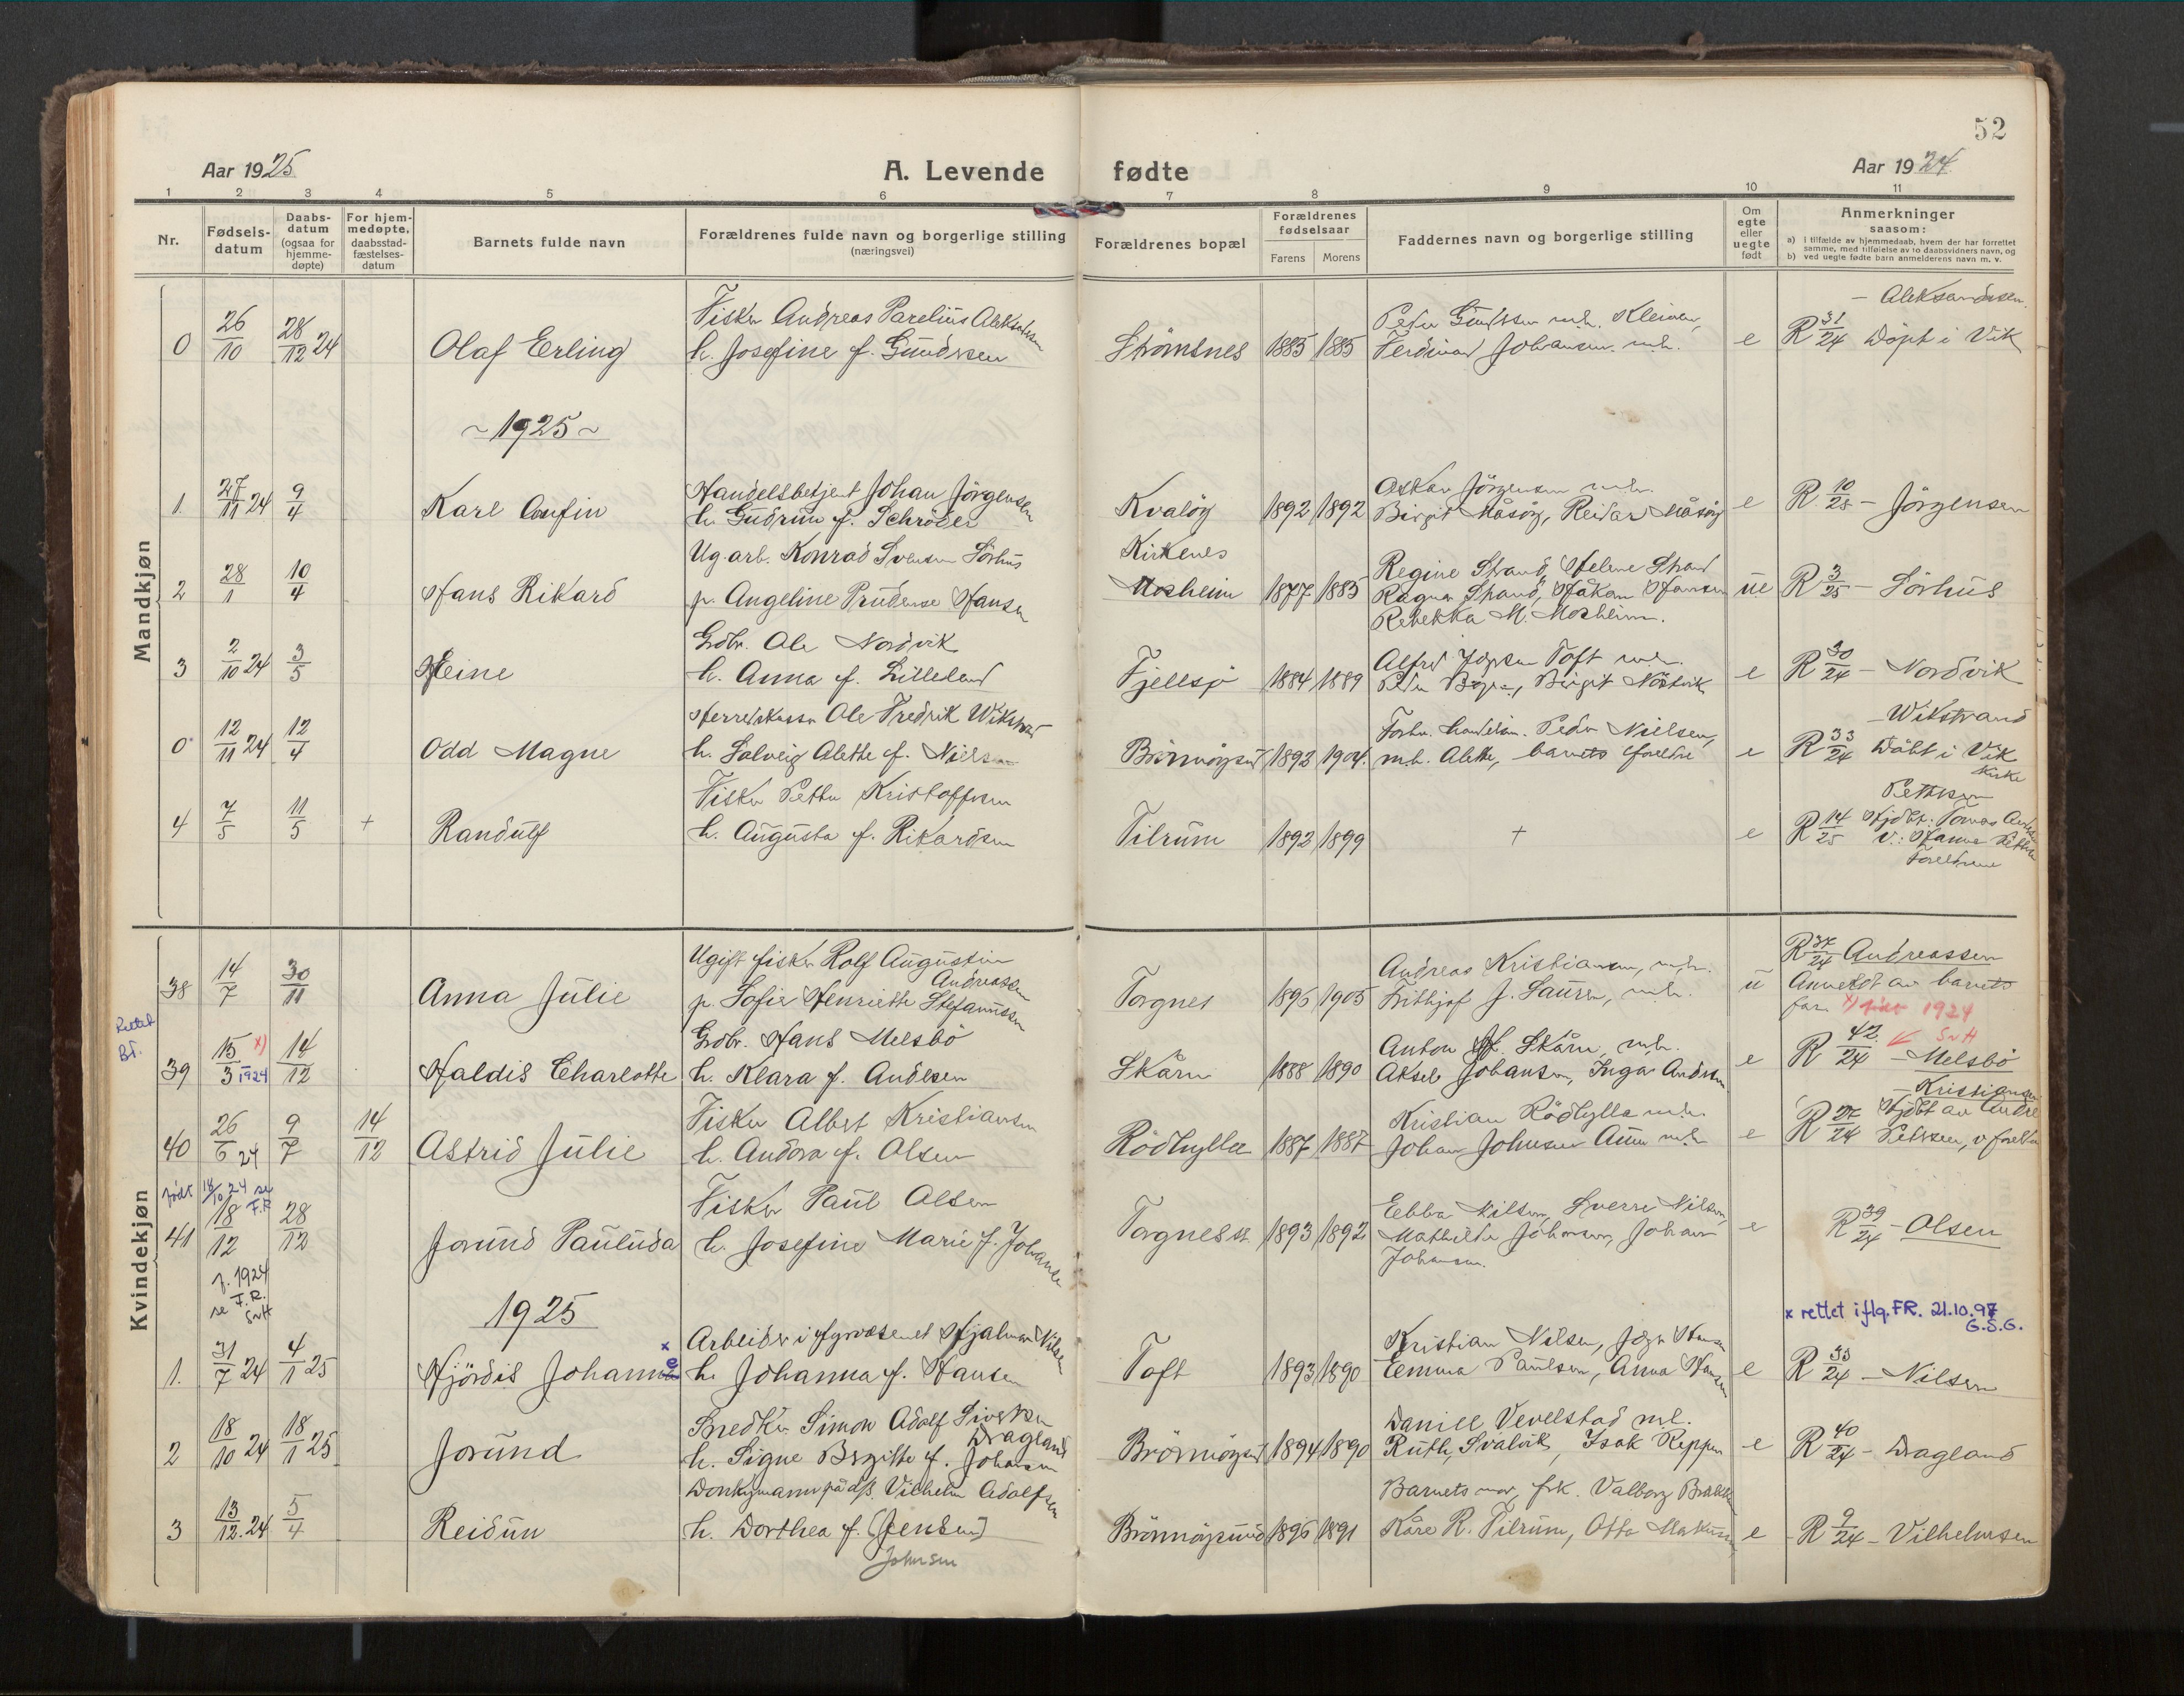 52
Aar 1925
A. Levende fødte
Aar 1924
1 2 3 4 5 6 7 8 9 10 11
Nr.
Fødsels-
datum
Daabs-
datum
(ogsaa for
hjemme-
døpte)
For hjem-
medøpte,
daabsstad-
fæstelses-
datum
Barnets fulde navn
Forældrenes fulde navn og borgerlige stilling
(næringsvei)
Forældrenes bopæl
Forældrenes
fødselsaar
Farens Morens
Faddernes navn og borgerlige stilling
Om
egte
eller
uegte
født
Anmerkninger
saasom:
a) i tilfælde av hjemmedaab, hvem der har forrettet
samme, med tilføielse av to daabsvidners navn, og
b) ved uegte fødte barn anmelderens navn m. v.
Mandkjøn
Fisker Andreas Parelius Aleksandsen
h. Josefine f. Gundersen
0 26/10 28/12 24 Olaf Erling
Strömsnes 1885 1885
Ferdinand Johansen m.h.
e
- Aleksandsen
R 31/24 Döpt i Vik
~ 1925 ~
1. 27/11 24 9/4 Karl Arnfin
Handelsbetjent Johan Jörgensen
h. Gudrun f. Schröder
Kvalöy 1892 1892
Oskar Jörgensen m.h.
Birgit Måsöy, Reidar Måsöy
e R 10/25 - Jörgensen
2 28/1 10/4 Hans Rikard
Ug. arb. Konrad Svensen Sörhus
p. Angeline Prudense Hansen
Kirkenes
Mosheim 1877 1885
Regine Strand, Helene Strand
Ragna Strand, Håkon Hansen
Rebekka M. Mosheim.
ue R 3/25 - Sörhus
3 2/10 24 3/5 Heine
Gdbr. Ole Nordvik
h. Anna f. Lilleland
Fjellsjö 1884 1889
Alfred Toft m.h.
Birgit Nordvik
e R 30/24 - Nordvik
0 12/11 24 12/4 Odd Magne
Herredskasser Ole Fredrik Wikstrand
h. Solveig Alethe f. Nielsen
Brönnöysund 1893 1904.
Forhv. handelsm. Peder Nielsen,
m.h. Alethe, barnets foreldre
e
- Wikstrand
R 33/24 Döbt i Vik
Kirke
4 7/5 11/5 + Randulf
Fisker Petter Kristoffersen
h. Augusta f. Rikardsen
Tilrum 1892 1899
+
e
Pettersen
R 14/25 Hjdbt: Tomas
v.: Hanna Pettersen
Foreldrene
Kvindekjøn
38 14/7 30/11 Anna Julie
Ugift fisker Rolf Augustin
Andreassen
p. Sofie Henriette Stefanussen
Torgnes 1896 1905
Andreas Kristiansen, m.h.
Frithjof J. Sauren, m.h.
u
R 37/24 Andreassen
Anmeldt av barnets
far. x) født 1924
SvH
Rettet
BT.
39 15/3 1924 x) 14/12 Haldis Charlotte
Gdbr. Hans Melsbö
h. Klara f. Andersen
Skårn 1888 1890
Anton H. Skårn, m.h.
Aksel Johansen, Inga Andersen
e R 42/24 - Melsbö
40 26/6 24 9/7 14/12 Astrid Julie
Fisker Albert Kristiansen
h. Andora f. Olsen
Rödhylla 1887 1887
Kristian Rödhylla m.h.
Johan Johnsen Aune m.h.
e
- Kristiansen
R 27/24 Hjdbt av Andre
Petersen, v. foreldre
født 18/10 24 se
F.R
41 18/12 28/12 Jorund Pauluda
Fisker Paul Olsen
h. Josefine Marie f. Johansen
Torgnes 1893 1892
Ebba Nilsen, Sverre Nilsen,
Mathilde Johansen, Johan
Johansen.
e R 39/24 - Olsen
f. 1924
se F.R.
SvH
1925
x rettet iflg. FR. 21.10.97
G.S.G.
1. 31/7 24 4/1 25 Hjördis Johanne x
Arbeider i fyrvæsenet Hjalmar Nilsen
h. Johanna f. Hansen
Toft 1893 1890
Kristian Nilsen, Hansen
Emma Paulsen, Anna Hansen
e R 35/24 - Nilsen
2 18/10 24 18/1 25 Jorund
Snedker Simon Adolf Sivertsen
Dragland
h. Signe Birgitte f. Johansen
Brönnöysund 1894 1890
Daniel Vevelstad m.h.
Ruth Svalvik, Isak Reppen
e R 40/24 - Dragland
3 13/12 24 5/4 Reidun
Donkymann på d/s. Vilhelm Adolfsen
h. Dorthea f. (Jensen)
Johnsen
Brönnöysund 1896 1891
Barnets mor, frk. Valborg
Kåre R. Tilrum, Otto Markussen,
e R 9/24 - Vilhelmsen